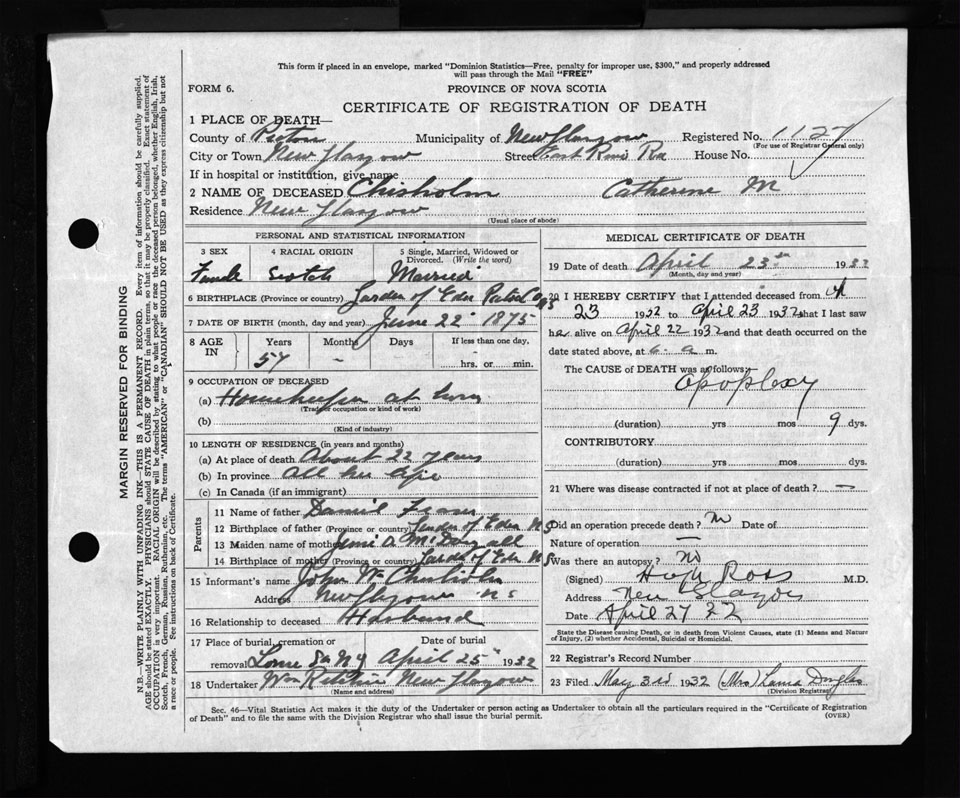 This form if placed in an envelope, marked "Dominion Statistics—Free, penalty for improper use, $300," and properly addressed
will pass through the Mail "FREE"
FORM 6.
PROVINCE OF NOVA SCOTIA
CERTIFICATE OF REGISTRATION OF DEATH
1 PLACE OF DEATH—
County of Pictou Municipality of New Glasgow Registered No. 1127
(For use of Registrar General only)
City or Town New Glasgow Street East River Rd House No.
If in hospital or institution, give name
2 NAME OF DECEASED Chisholm Catherine M
Residence New Glasgow
(Usual place of abode)
PERSONAL AND STATISTICAL INFORMATION
3 SEX 4 RACIAL ORIGIN 5 Single, Married, Widowed or Divorced. (Write the word)
Female Scotch Married
6 BIRTHPLACE (Province or country) Garden of Eden Pictou Co NS
7 DATE OF BIRTH (month, day and year) June 22 1875
8 AGE IN Years Months Days If less than one day,
57 - hrs. or min.
9 OCCUPATION OF DECEASED
(a) Housekeeper at home
(Trade, occupation or kind of work)
(b)
(Kind of industry)
10 LENGTH OF RESIDENCE (in years and months)
(a) At place of death About 22 years
(b) In province All her life
(c) In Canada (if an immigrant)
Parents
11 Name of father Daniel Fraser
12 Birthplace of father (Province or country) Garden of Eden NS
13 Maiden name of mother D. McDougall
14 Birthplace of mother (Province or country) Garden of Eden NS
15 Informant's name John Wm Chisholm
Address New Glasgow NS
16 Relationship to deceased Husband
17 Place of burial, cremation or removal Date of burial
Lorne April 25 1932
18 Undertaker Wm Ritchie New Glasgow
(Name and address)
MEDICAL CERTIFICATE OF DEATH
19 Date of death April 23rd 1932
(Month, day and year)
20 I HEREBY CERTIFY that I attended deceased from Ap
23 1932 to April 23 1932 that I last saw
her alive on April 22 1932 and that death occurred on the
date stated above, at 6 a m.
The CAUSE of DEATH was as follows:
Apoplexy
(duration) yrs mos 9 dys.
CONTRIBUTORY
(duration) yrs mos dys.
21 Where was disease contracted if not at place of death? -
Did an operation precede death? No Date of
Nature of operation —
Was there an autopsy? No
(Signed) Hugh Ross M.D.
Address New Glasgow
Date April 27 32
State the Disease causing Death, or in death from Violent Causes, state (1) Means and Nature
of Injury, (2) whether Accidental, Suicidal or Homicidal.
22 Registrar's Record Number
23 Filed May 3rd 1932 (Mrs) Douglas
(Division Registrar)
Sec. 46—Vital Statistics Act makes it the duty of the Undertaker or person acting as Undertaker to obtain all the particulars required in the "Certificate of Registration
of Death" and to file the same with the Division Registrar who shall issue the burial permit.
(OVER)
MARGIN RESERVED FOR BINDING
N.B.—WRITE PLAINLY WITH UNFADING INK—THIS IS A PERMANENT RECORD. Every item of information should be carefully supplied.
AGE should be stated EXACTLY. PHYSICIANS should STATE CAUSE OF DEATH in plain terms, so that it may be properly classified. Exact statement of
OCCUPATION is very important. RACIAL ORIGIN will be described by stating to what people or race the deceased person belonged, whether English, Irish,
Scotch, French, German, Russian, Ruthenian, etc. The terms "AMERICAN" or "CANADIAN" SHOULD NOT BE USED as they express citizenship but not
a race or people. See instructions on back of Certificate.